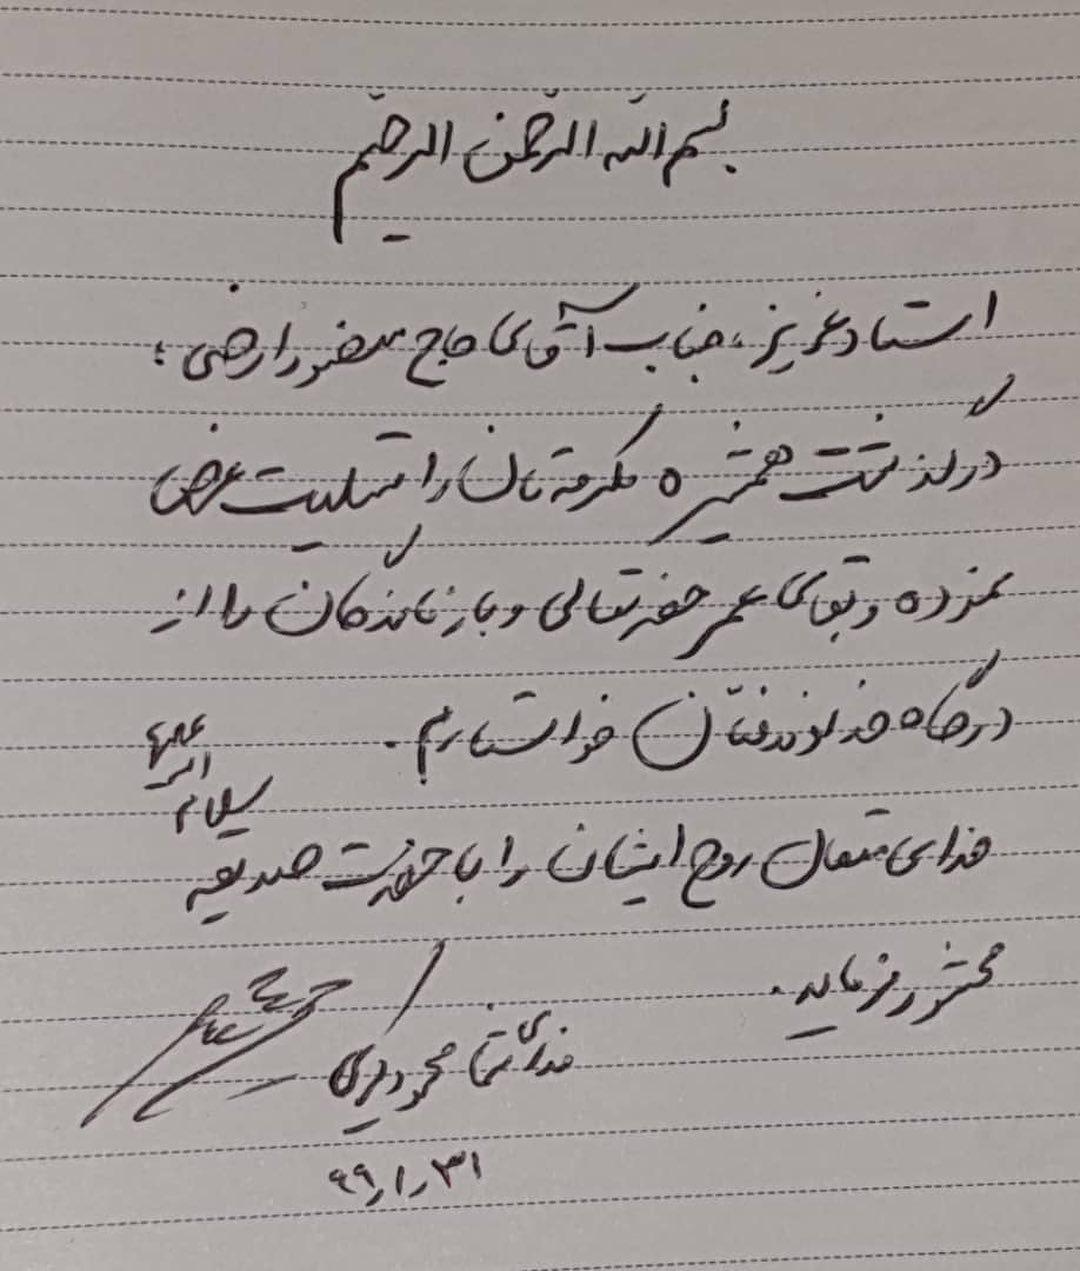 بسم الله الرحمن الرحیم
استاد عزیز، جناب آقای حاج منصور ارضی؛
درگذشت همشیره مکرمه تان را تسلیت عرض
نموده و بقای عمر حضرتعالی و بازماندگان را از
درگاه خداوند منان خواستارم.
خدای متعال روح ایشان را با حضرت صدیقه
علیها السلام
محشور فرماید.
فدای شما محمود کریمی
۹۹/۱/۳۱